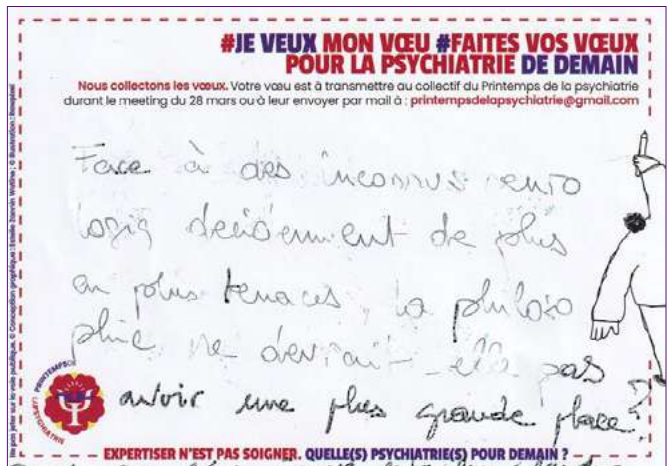 #JE VEUX MON VŒU #FAITES VOS VŒUX
POUR LA PSYCHIATRIE DE DEMAIN
Nous collectons les vœux. Votre vœu est à transmettre au collectif du Printemps de la psychiatrie
durant le meeting du 28 mars ou à leur envoyer par mail à : printempsdelapsychiatrie@gmail.com
Face à des inconnus neuro
logiq décidemment de plus
en plus tenaces, la philoso
phie ne devrait-elle pas
avoir une plus grande place?
PRINTEMPS DE
LA PSYCHIATRIE
EXPERTISER N'EST PAS SOIGNER. QUELLE(S) PSYCHIATRIE(S) POUR DEMAIN ?
Ne pas jeter sur la voie publique. © Conception graphique : Estelle Wattine ; © Illustration :